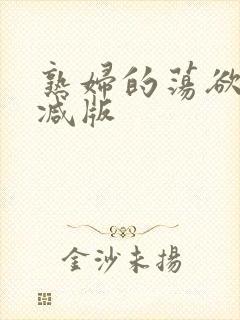 熟婦的蕩欲
减版
金沙未揚